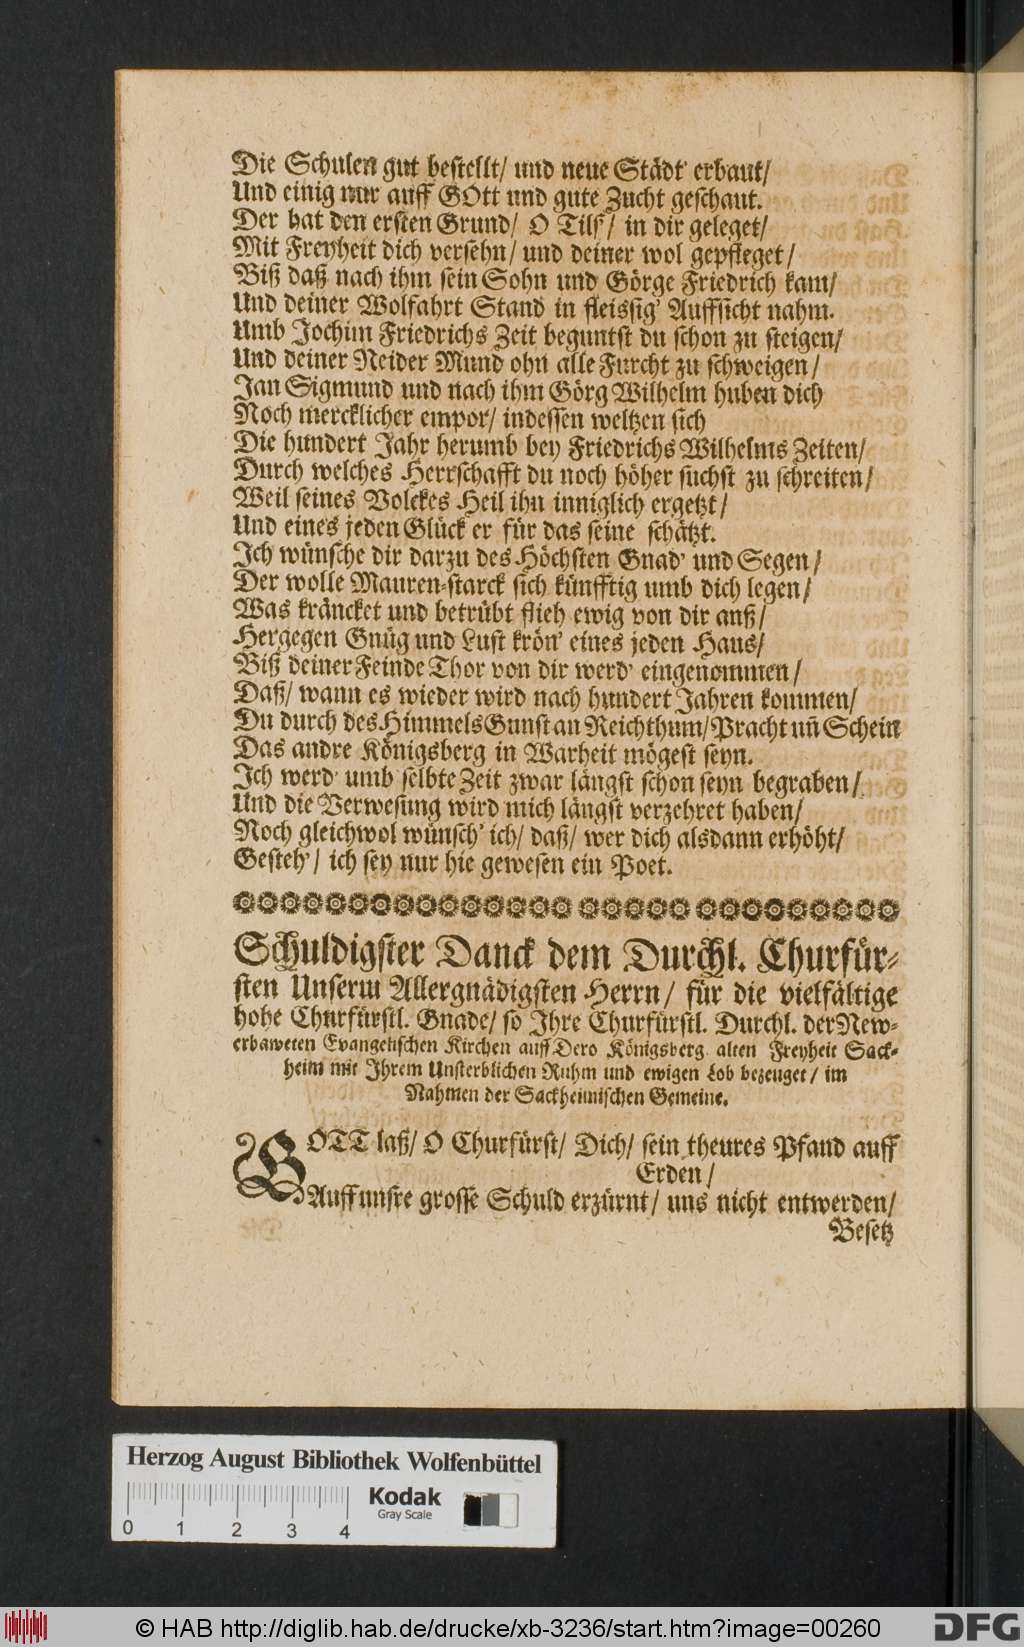 Die Schulen gut bestellt/ und neue Städt' erbaut/
Und einig nur auff GOtt und gute Zucht geschaut.
Der hat den ersten Grund/ O Tils'/ in dir geleget/
Mit Freyheit dich versehn/ und deiner wol gepfleget/
Biß daß nach ihm sein Sohn und Görge Friedrich kam/
Und deiner Wolfahrt Stand in fleissig' Auffsicht nahm.
Umb Jochim Friedrichs Zeit beguntst du schon zu steigen/
Und deiner Neider Mund ohn alle Furcht zu schweigen/
Jan Sigmund und nach ihm Görg Wilhelm huben dich
Noch mercklicher empor/ indessen weltzen sich
Die hundert Jahr herumb bey Friedrichs Wilhelms Zeiten/
Durch welches Herrschafft du noch höher suchst zu schreiten/
Weil seines Volckes Heil ihn inniglich ergetzt/
Und eines jeden Glück er für das seine schätzt.
Ich wünsche dir darzu des Höchsten Gnad' und Segen/
Der wolle Mauren-starck sich künfftig umb dich legen/
Was kräncket und betrübt flieh ewig von dir auß/
Hergegen Gnüg und Lust krön' eines jeden Haus/
Biß deiner Feinde Thor von dir werd' eingenommen/
Daß/ wann es wieder wird nach hundert Jahren kommen/
Du durch des Himmels Gunst an Reichthum/ Pracht uñ Schein
Das andre Königsberg in Warheit mögest seyn.
Ich werd' umb selbte Zeit zwar längst schon seyn begraben/
Und die Verwesung wird mich längst verzehret haben/
Noch gleichwol wünsch' ich/ daß/ wer dich alsdann erhöht/
Gesteh'/ ich sey nur hie gewesen ein Poet.
Schuldigster Danck dem Durchl. Churfür-
sten Unserm Allergnädigsten Herrn/ für die vielfältige
hohe Churfürstl. Gnade/ so Ihre Churfürstl. Durchl. der New-
erbaweten Evangelischen Kirchen auff Dero Königsberg. alten Freyheit Sack-
heim mit Ihrem Unsterblichen Ruhm und ewigen Lob bezeuget/ im
Nahmen der Sackheimischen Gemeine.
GOTT laß/ O Churfürst/ Dich/ sein theures Pfand auff
Erden/
Auff unsre grosse Schuld erzürnt/ uns nicht entwerden/
Besetz
Herzog August Bibliothek Wolfenbüttel
Kodak
Gray Scale
0 1 2 3 4
© HAB http://diglib.hab.de/drucke/xb-3236/start.htm?image=00260
DFG